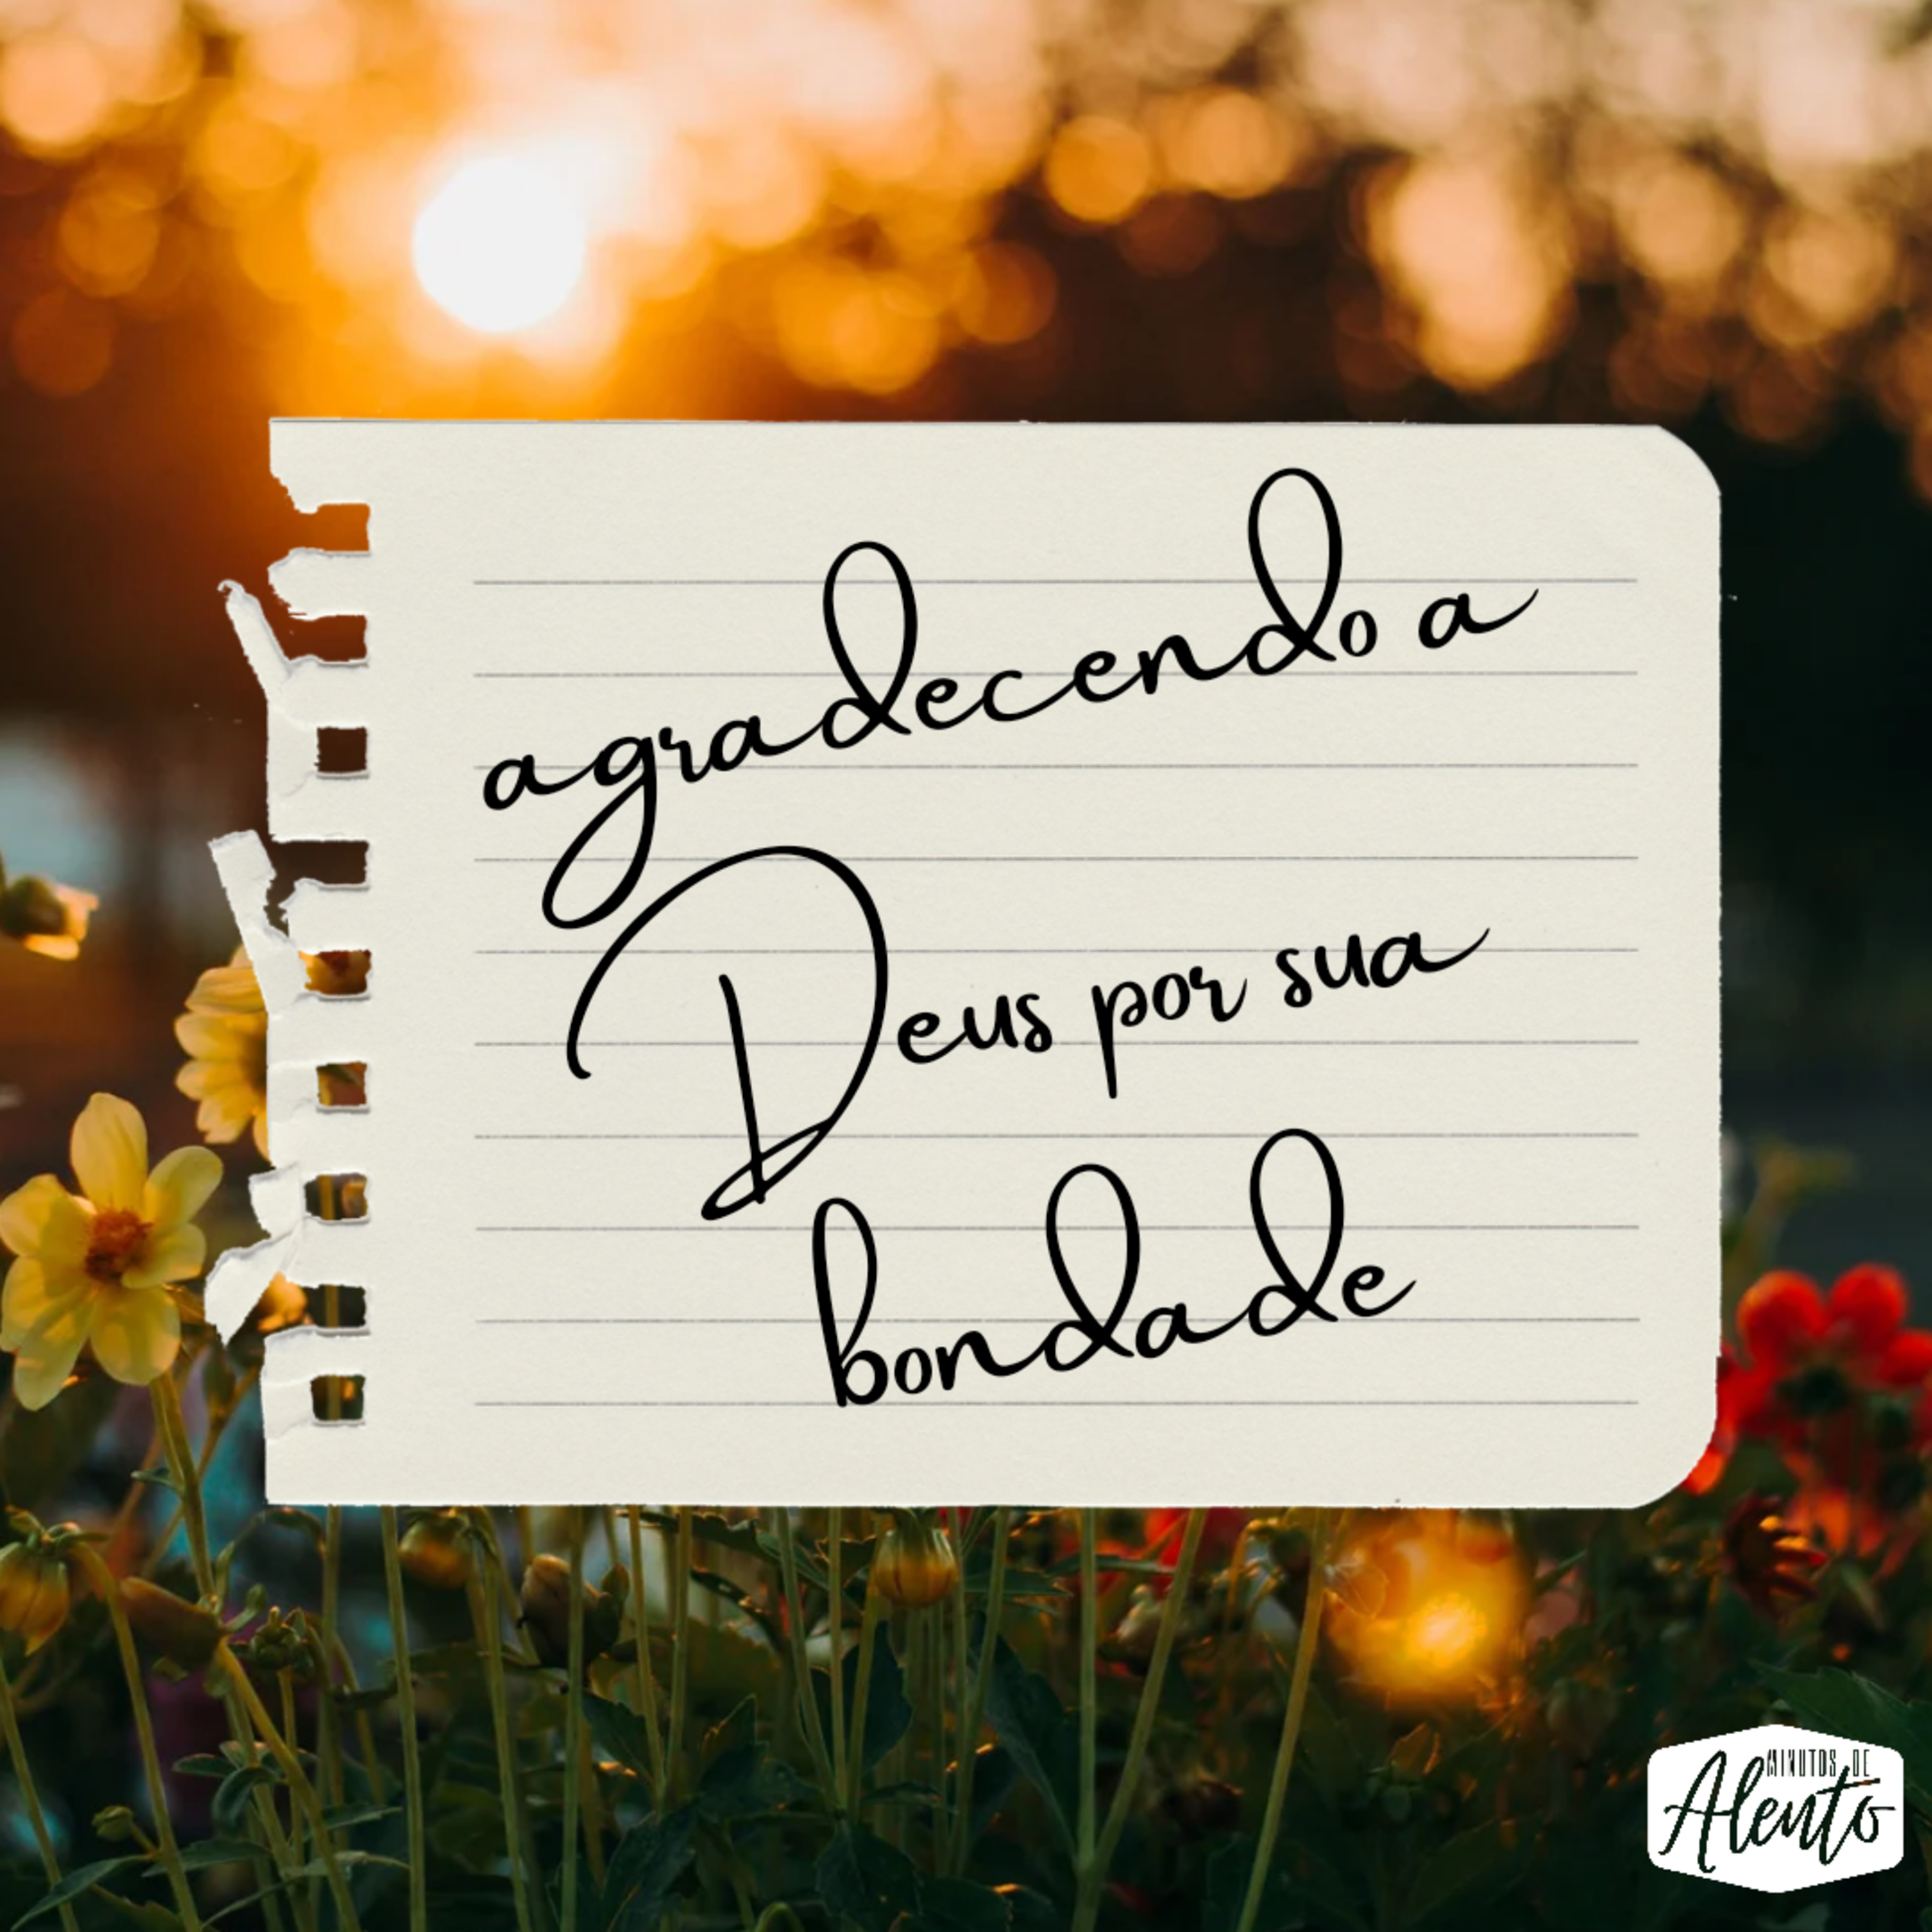 agradecendo a
Deus por sua
bondade
MINUTOS DE
Alento